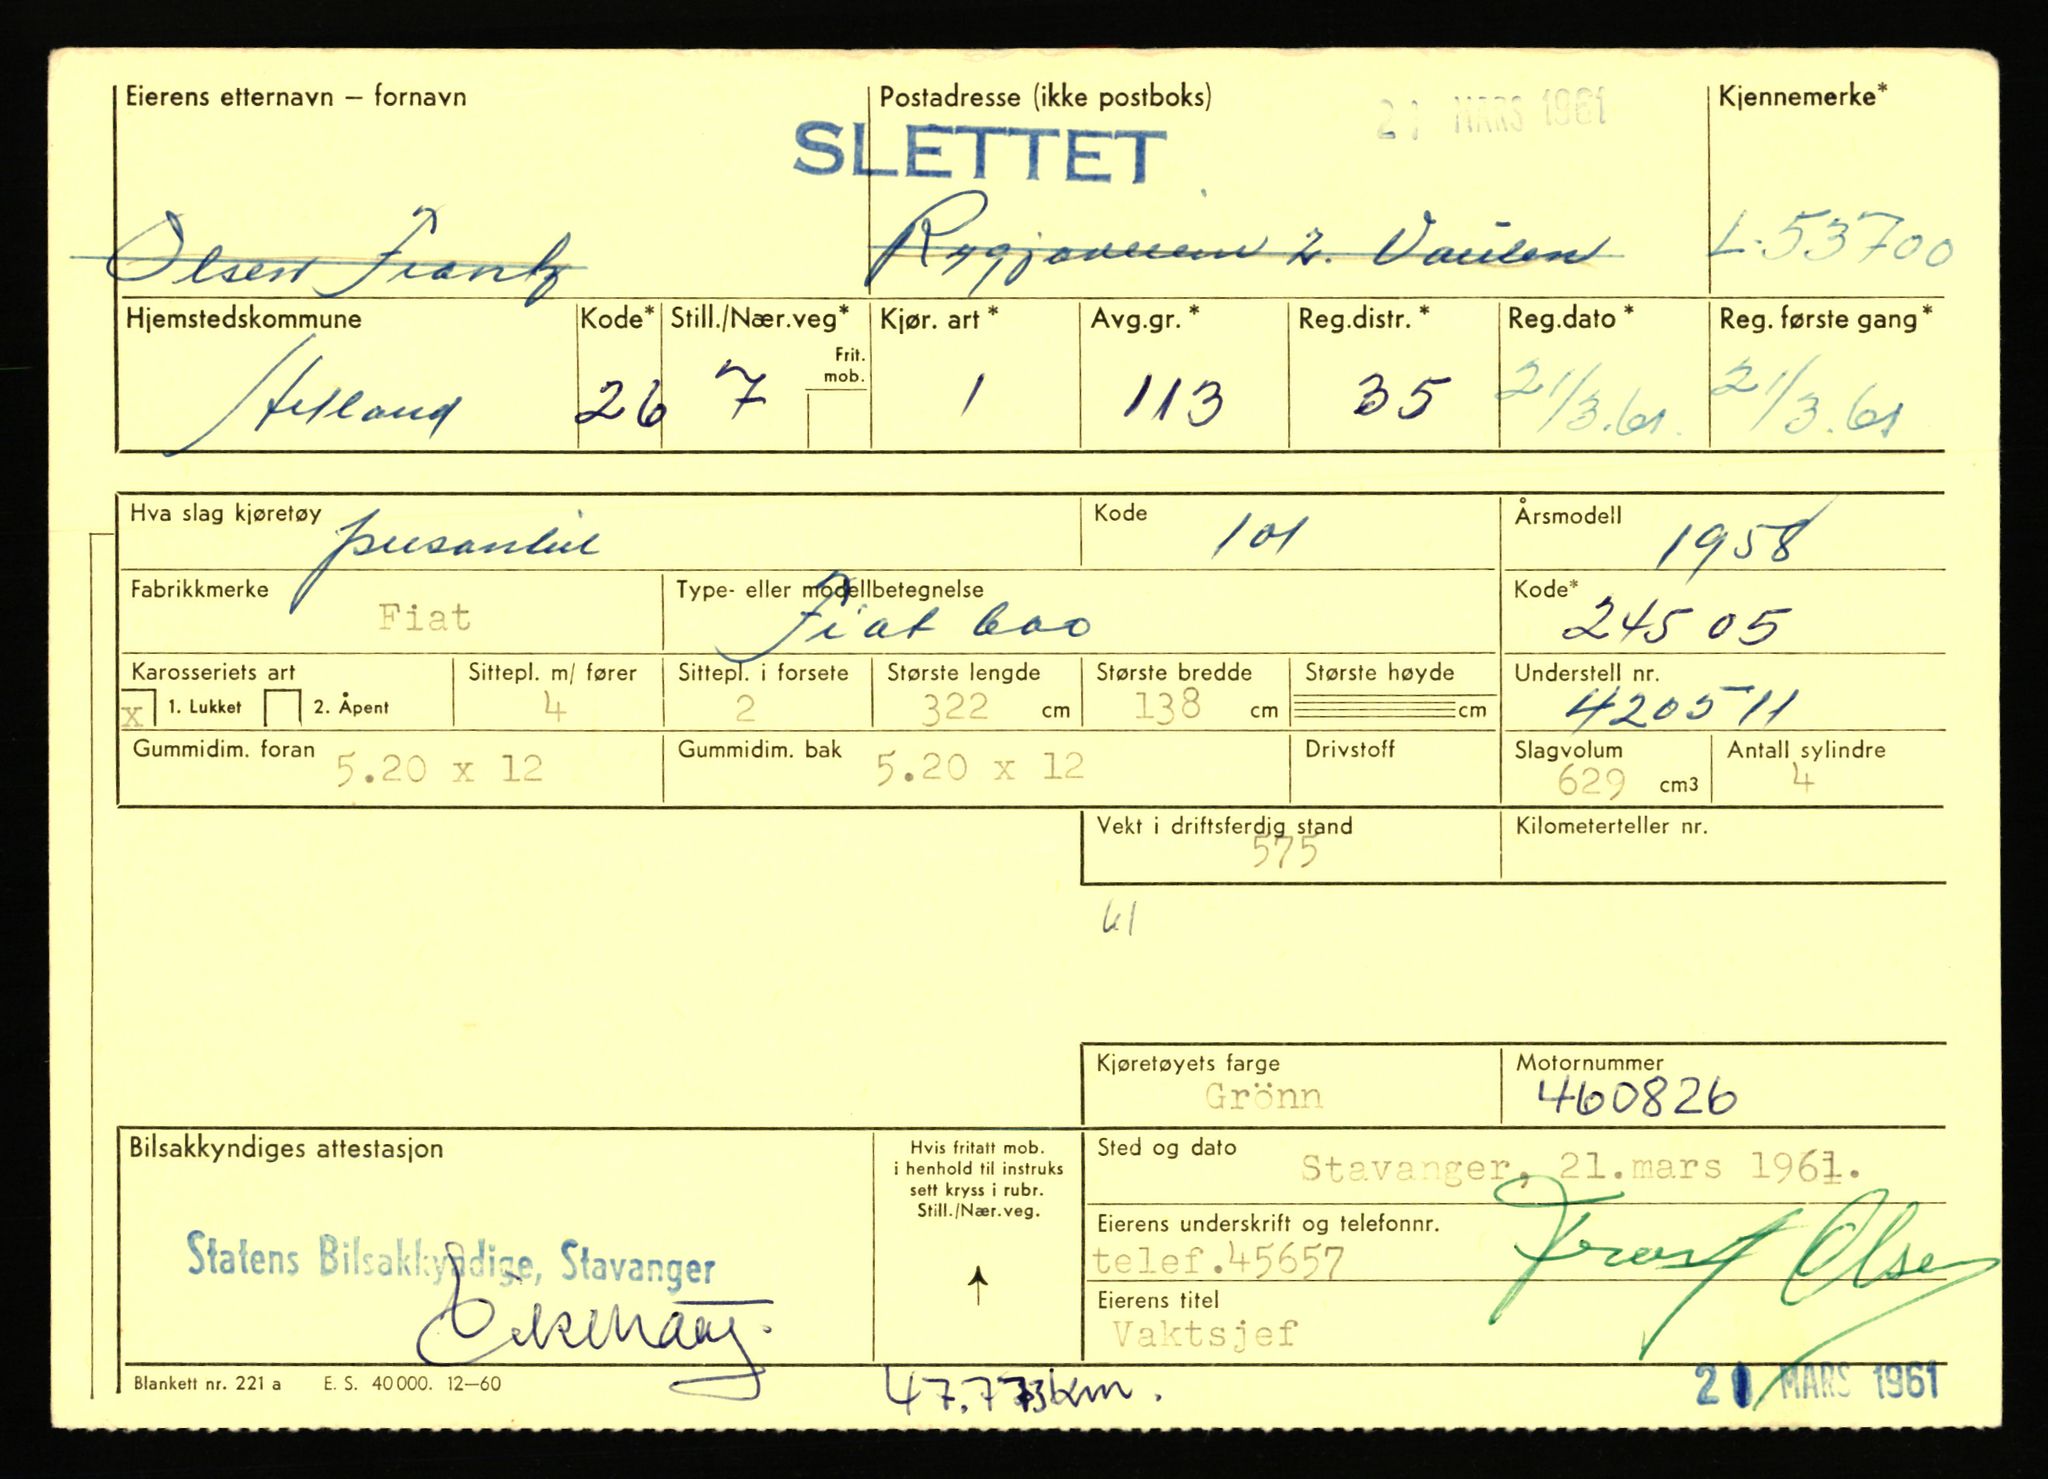 Eierens etternavn – fornavn
Postadresse (ikke postboks)
21 MARS 1961
Kjennemerke*
SLETTET
Olsen Frantz
Rygjaveien 2. Vaulen
L-53700
Hjemstedskommune Kode* Still./Nær.veg* Kjør. art* Avg.gr.* Reg.distr.* Reg.dato* Reg. første gang*
Frit. mob.
Hetland 26 7 1 113 35 21/3.61. 21/3.61
Hva slag kjøretøy personbil Kode 101 Årsmodell 1958
Fabrikkmerke Type- eller modellbetegnelse Kode*
Fiat Fiat 600 24505
Karosseriets art Sittepl. m/ fører Sittepl. i forsete Største lengde Største bredde Største høyde Understell nr.
x 1. Lukket 2. Åpent 4 2 322 cm 138 cm cm 420511
Gummidim. foran Gummidim. bak Drivstoff Slagvolum Antall sylindre
5.20 x 12 5.20 x 12 629 cm3 4
Vekt i driftsferdig stand Kilometerteller nr.
575
61
Kjøretøyets farge Motornummer
Grönn 460826
Bilsakkyndiges attestasjon
Hvis fritatt mob.
i henhold til instruks
sett kryss i rubr.
Still./Nær.veg.
Sted og dato
Stavanger, 21.mars 1961.
Eierens underskrift og telefonnr.
telef.45657 Frantz Olsen
Statens Bilsakkyndige, Stavanger
Eierens titel
Vaktsjef
Blankett nr. 221 a E. S. 40 000. 12–60
47.773 km.
21 MARS 1961